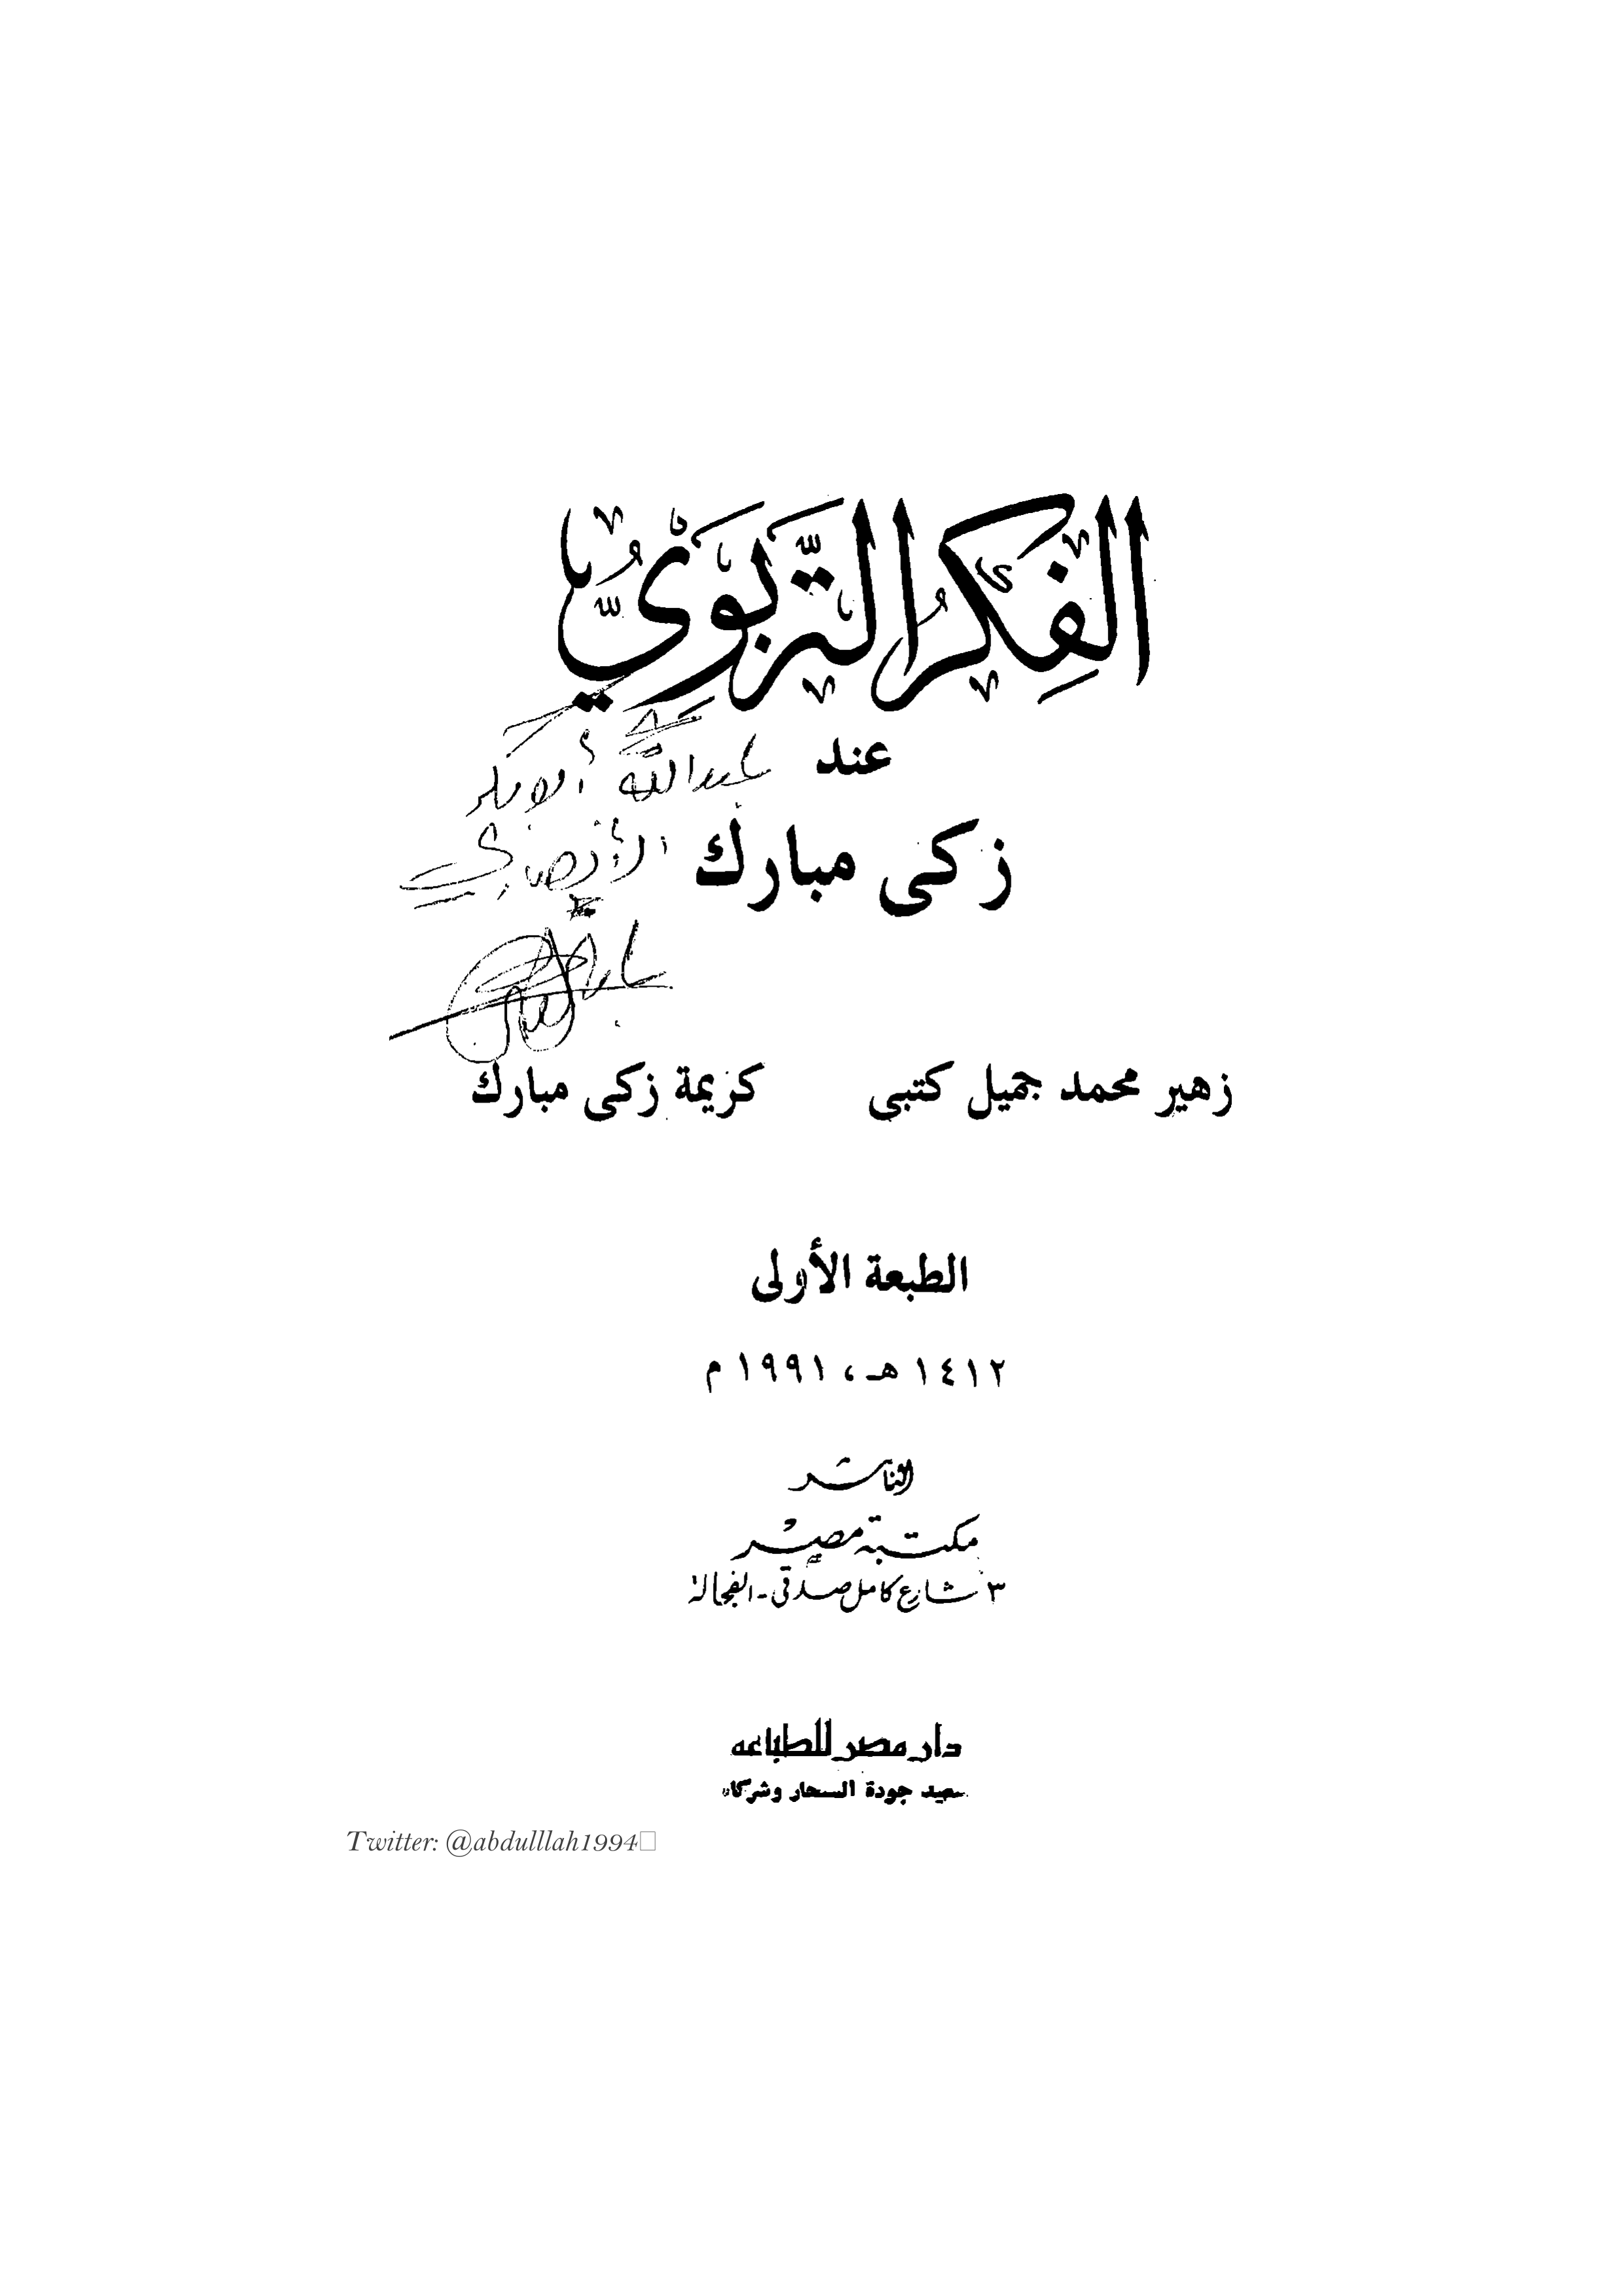 الفِكرُ التّربَويّ
عند
عبدالله أبو بكر
زكى مبارك
الأنصاري
زهير محمد جميل كتبى كريمة زكى مبارك
الطبعة الأولى
١٤١٢ هـ ، ١٩٩١ م
الناشر
مكتبة مصر
٣ شارع كامل صدقى - الفجالة
دار مصر للطباعه
سعيد جودة السحار وشركاه
Twitter: @abdulllah1994